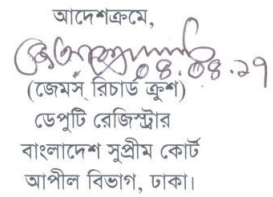 আদেশক্রমে,
০৪.০৪.২৭
(জেমস্ রিচার্ড ক্রুশ)
ডেপুটি রেজিস্ট্রার
বাংলাদেশ সুপ্রীম কোর্ট
আপীল বিভাগ, ঢাকা।